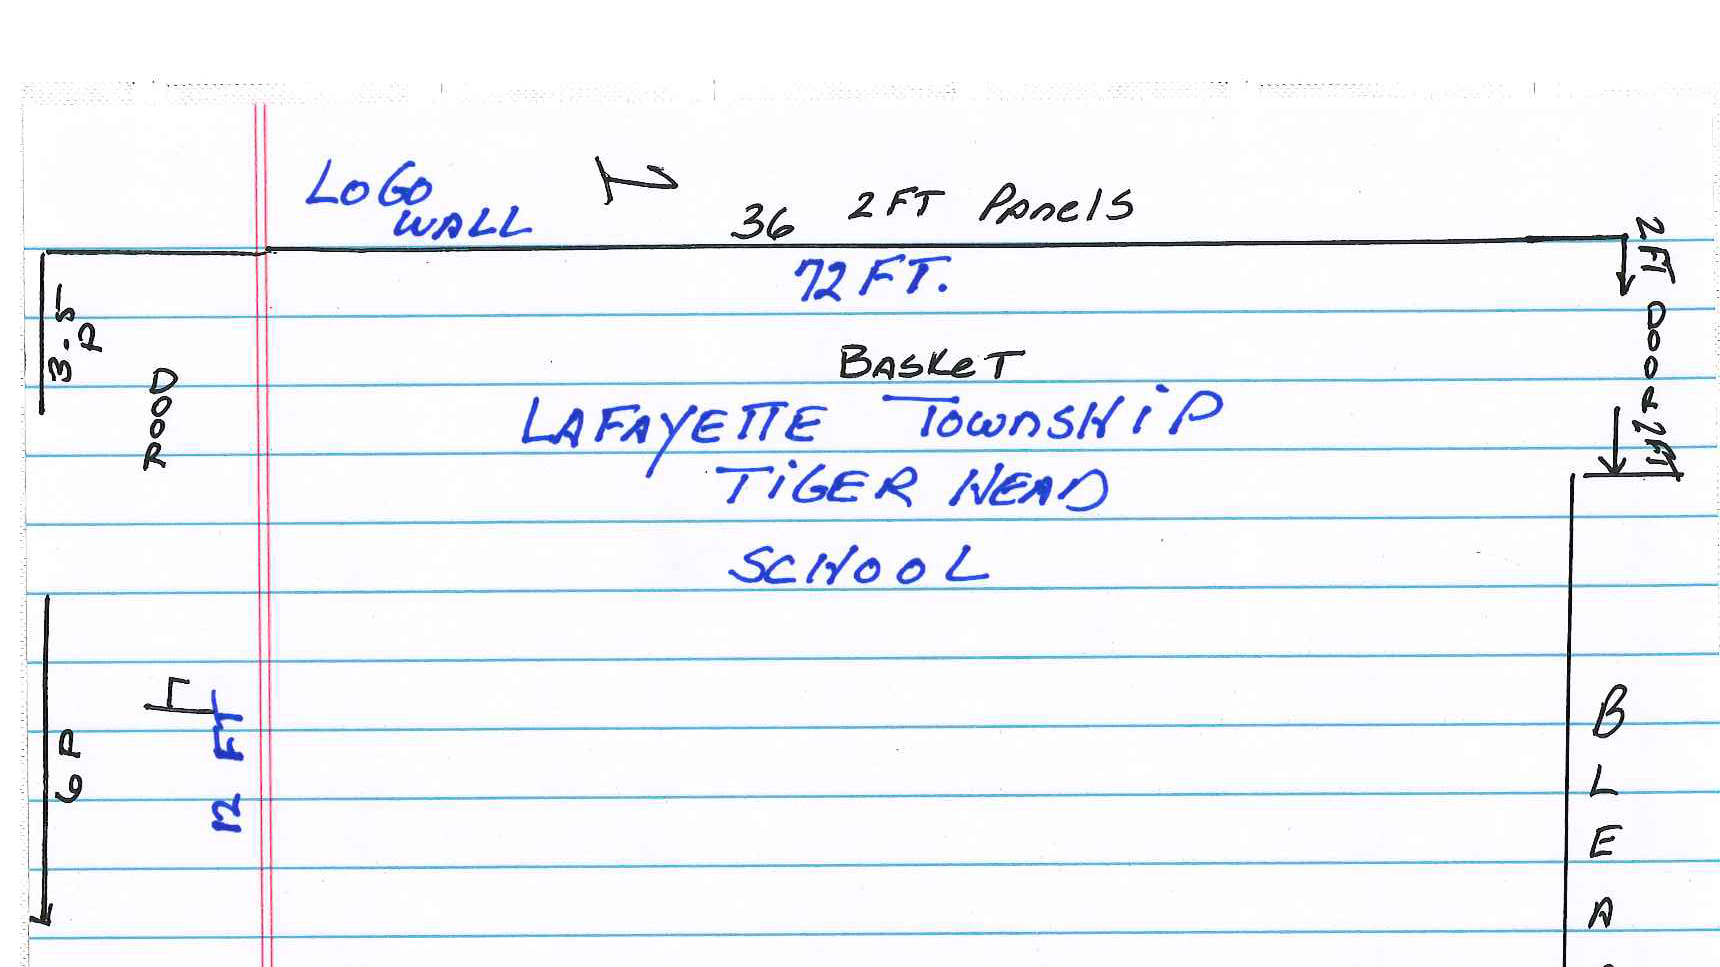 LOGO
WALL
36 2FT PANELS
72 FT.
2FT
DOOR
2FT
3.5
P
DOOR
BASKET
LAFAYETTE TOWNSHIP
TIGER HEAD
SCHOOL
6 P
12 FT
B
L
E
A